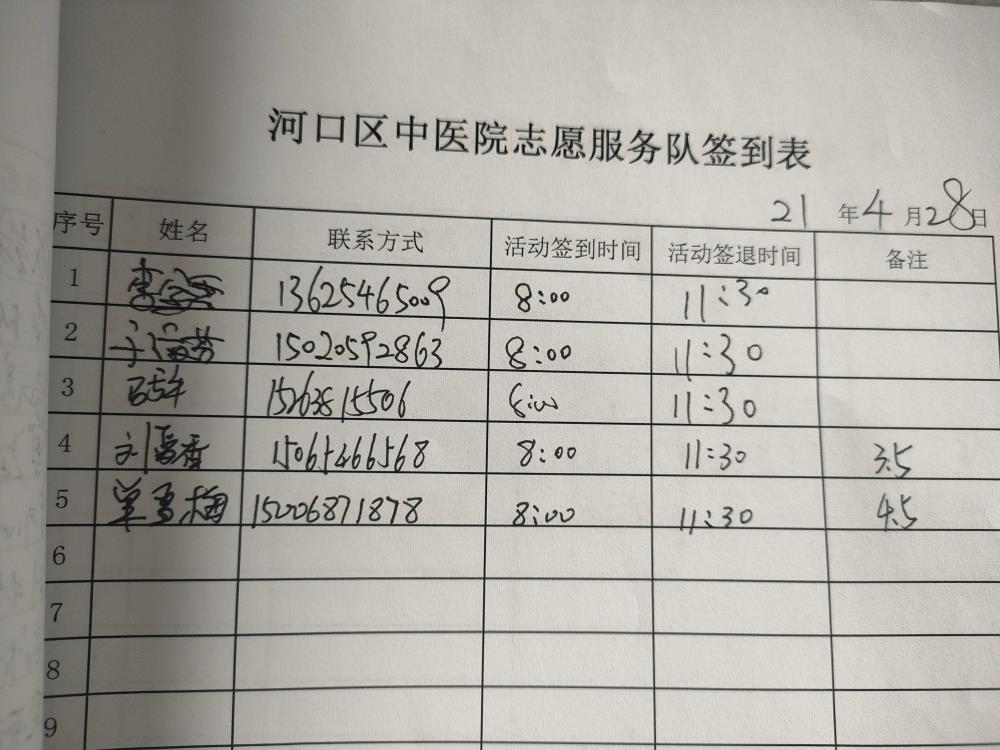 河口区中医院志愿服务队签到表
21 年 4 月 28 日
序号 姓名 联系方式 活动签到时间 活动签退时间 备注
1 13625465009 8:00 11:30
2 15020592863 8:00 11:30
3 15263815506 8:00 11:30
4 刘 香 15065466568 8:00 11:30 3.5
5 单 梅 15006871878 8:00 11:30 4.5
6
7
8
9